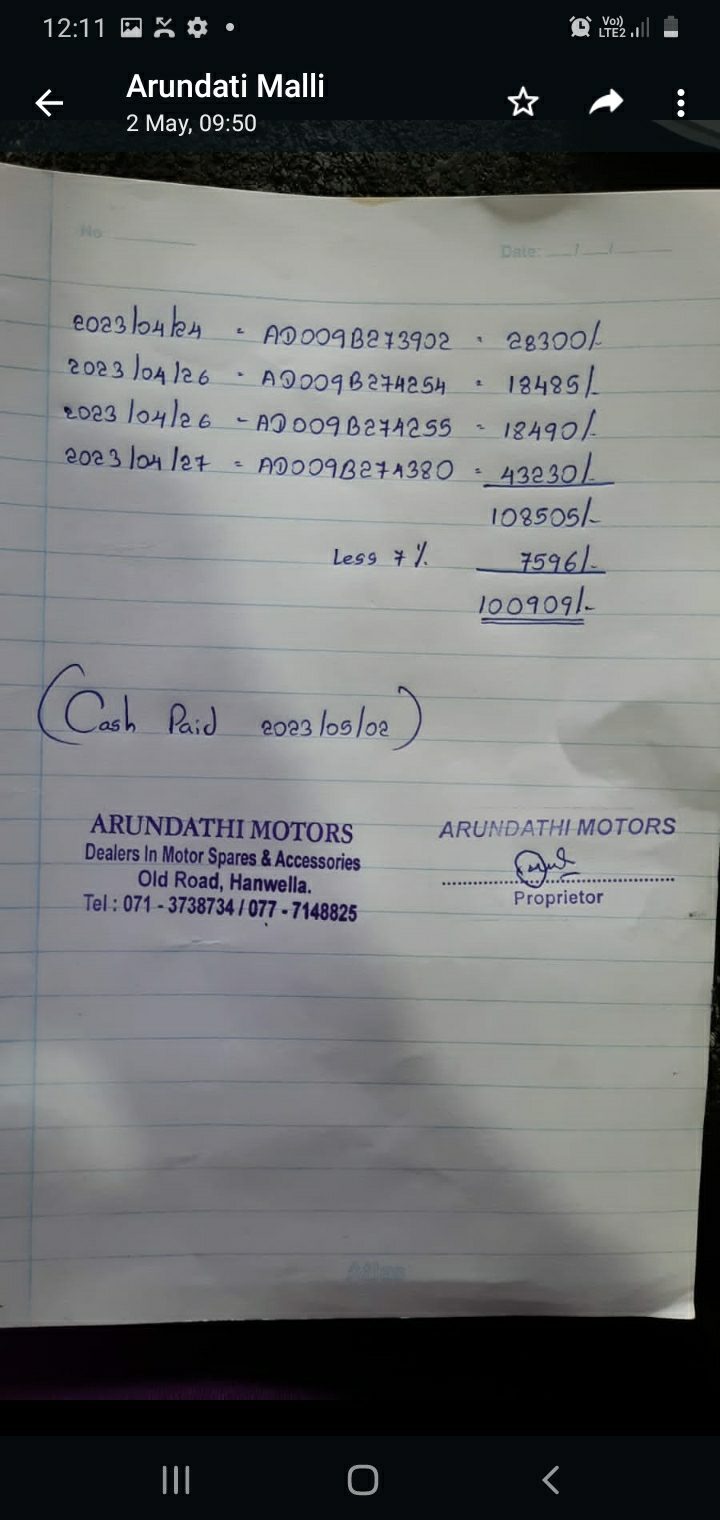 12:11
Vo))
LTE2
Arundati Malli
2 May, 09:50
No
Date: / /
2023/04/24 - AD009B273902 - 28300/-
2023/04/26 - AD009B274254 - 18485/-
2023/04/26 - AD009B274255 - 18490/-
2023/04/27 = AD009B274380 = 43230/-
108505/-
Less 7% 7596/-
100909/-
(Cash Paid 2023/05/02)
ARUNDATHI MOTORS
Dealers In Motor Spares & Accessories
Old Road, Hanwella.
Tel : 071 - 3738734 / 077 - 7148825
ARUNDATHI MOTORS
Proprietor
Atlas